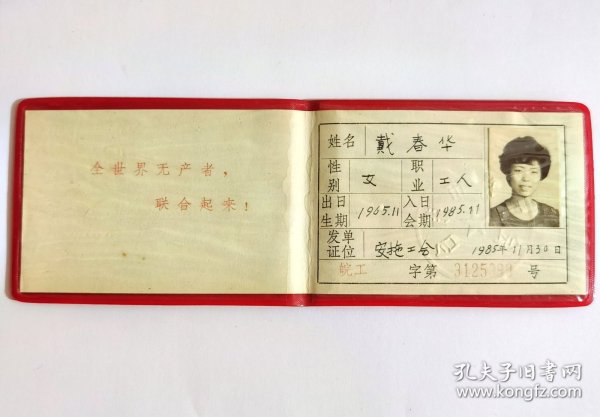 全世界无产者，
联合起来！
姓名 戴春华
性别 女 职业 工人
出生日期 1965.11 入会日期 1985.11
发证单位 安拖工会 1985年11月30日
皖工 字第 号
孔夫子旧书网
www.kongfz.com